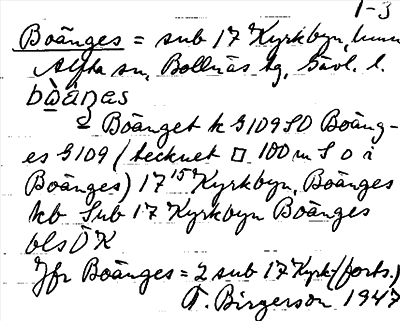 1-3
Boänges = sub 17 Kyrkbyn, 
Alfta sn, Bollnäs tg, Gävl. l.
Boänget k G109 SO Boäng-
es G109 (tecknet □ 100 m S o i
Boänges) 17 15¹ Kyrkbyn, Boänges
kb Sub 17 Kyrkbyn Boänges
bls ÖK
Jfr Boänges = 2 sub 17 Kyrk (forts.)
T. Birgerson 1947